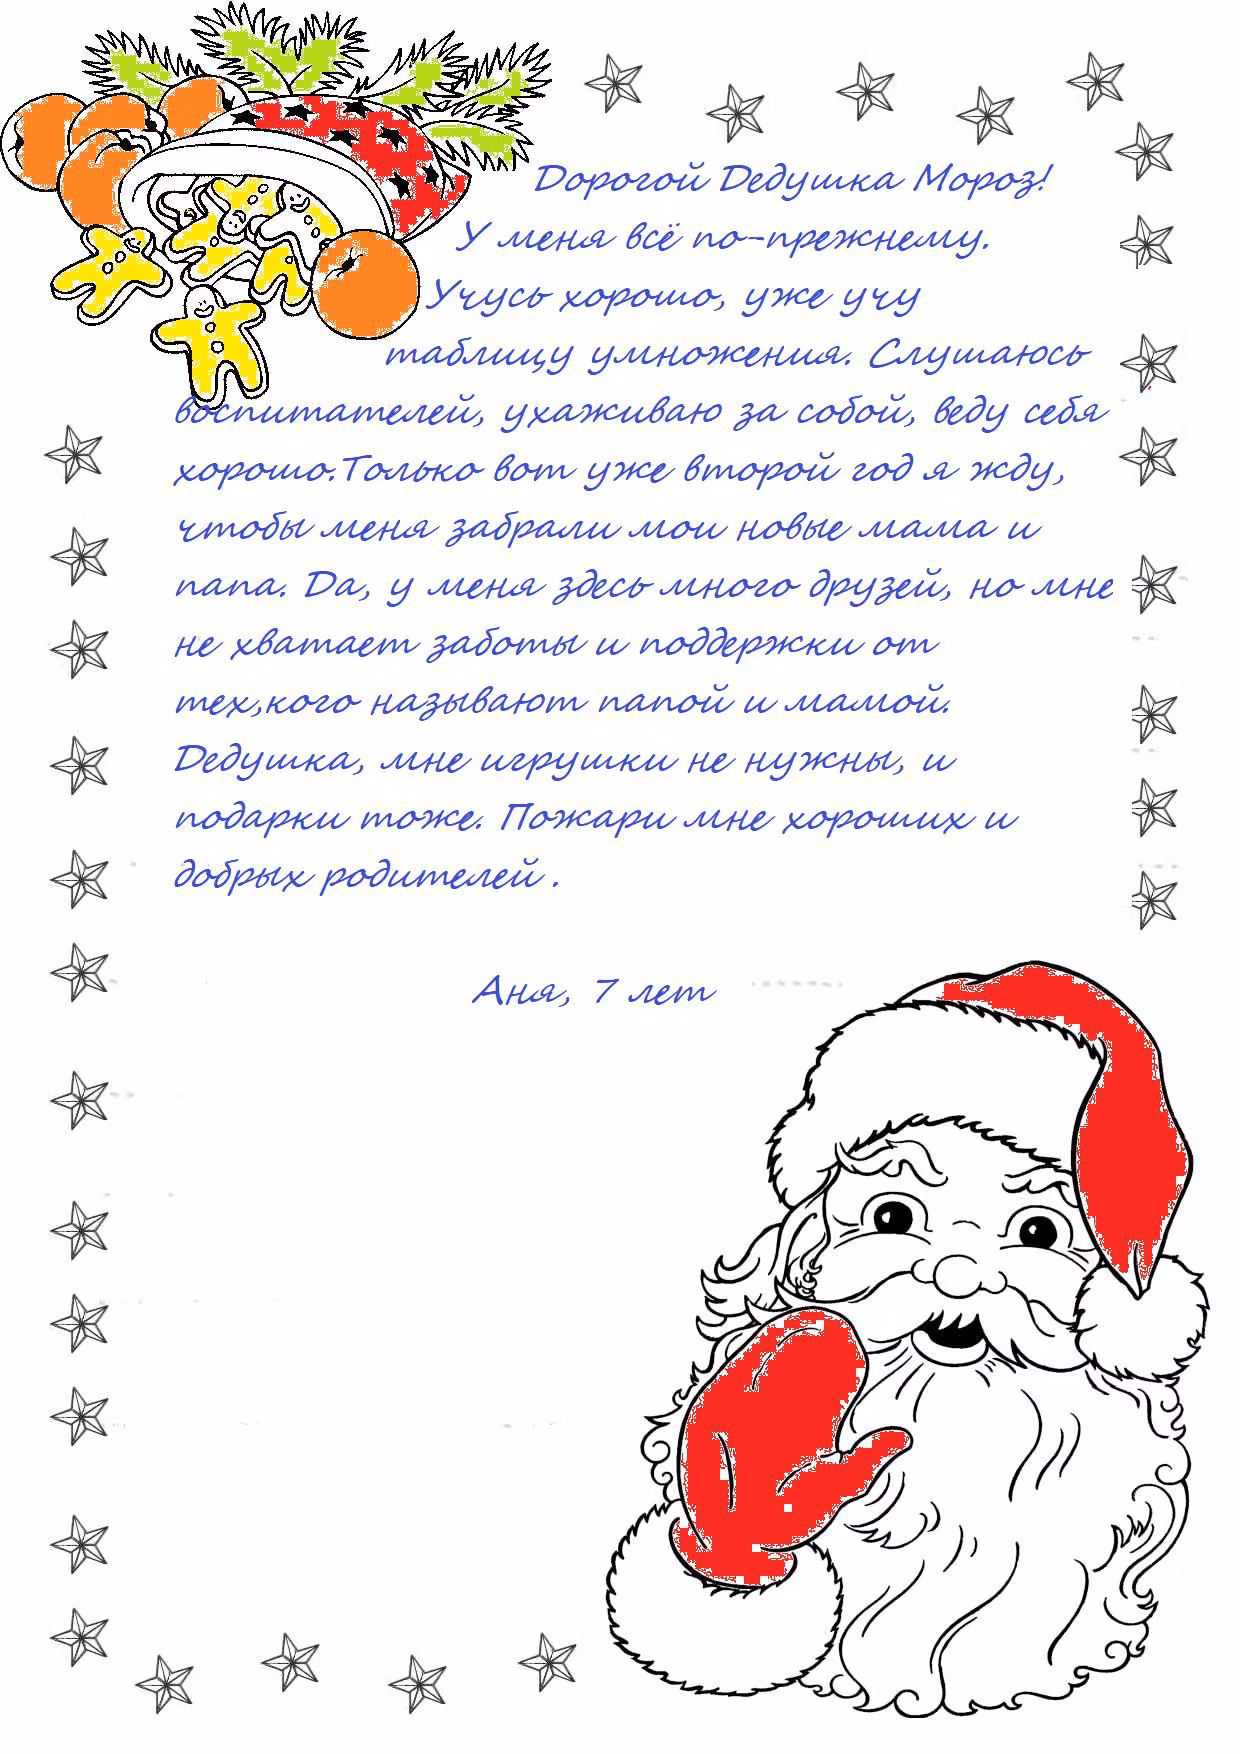 Дорогой Дедушка Мороз!
У меня всё по-прежнему.
Учусь хорошо, уже учу
таблицу умножения. Слушаюсь
воспитателей, ухаживаю за собой, веду себя
хорошо.Только вот уже второй год я жду,
чтобы меня забрали мои новые мама и
папа. Да, у меня здесь много друзей, но мне
не хватает заботы и поддержки от
тех,кого называют папой и мамой.
Дедушка, мне игрушки не нужны, и
подарки тоже. Пожари мне хороших и
добрых родителей .
Аня, 7 лет